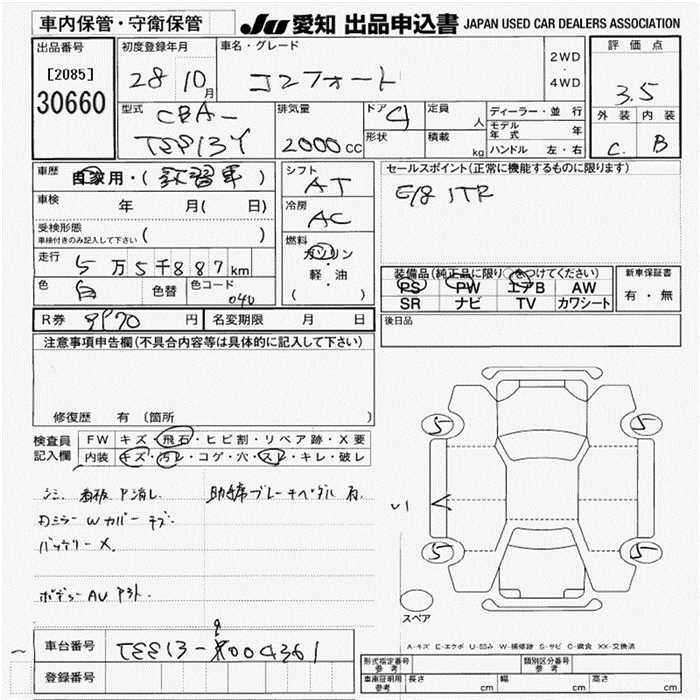 車内保管・守衛保管
JU 愛知 出品申込書 JAPAN USED CAR DEALERS ASSOCIATION
出品番号
[2085]
30660
初度登録年月
28 10月
車名・グレード
コンフォート
2WD
・
4WD
評価点
3.5
外装 内装
C. B
型式
CBA-
TSS13Y
排気量
2000cc
ドア
4
形状
定員
人
積載
kg
ディーラー・並行
モデル年式 年
ハンドル 左・右
車歴
自家用・(教習車)
車検
年 月( 日)
受検形態
車検付きのみ記入して下さい ( )
走行
5万5千887km
色
白
色替
色コード
040
シフト
AT
冷房
AC
燃料
ガソリン
・
軽・油
( )
セールスポイント(正常に機能するものに限ります)
E/g 1TR
装備品(純正品に限り○をつけてください)
PS PW エアB AW
SR ナビ TV カワシート
新車保証書
有・無
R券 9970円
名変期限 月 日
後日品
注意事項申告欄(不具合内容等は具体的に記入して下さい)
修復歴 有 (箇所 )
検査員記入欄
FW キズ・飛石・ヒビ割・リペア跡・X要
内装 キズ・汚レ・コゲ・穴・スレ・キレ・破レ
シミ 看板P消し 助手席ブレーキペダル有
Rミラー Wカバー キズ
バッテリーX
ボディーAU P外.
5 5
5 5
スペア
A-キズ E-エクボ U-凹み W-補修跡 S-サビ C-腐食 XX-交換済
車台番号
TSS13-9004361
登録番号
形式指定番号 参考
類別区分番号 参考
車庫証明用 参考
長さ cm
幅 cm
高さ cm